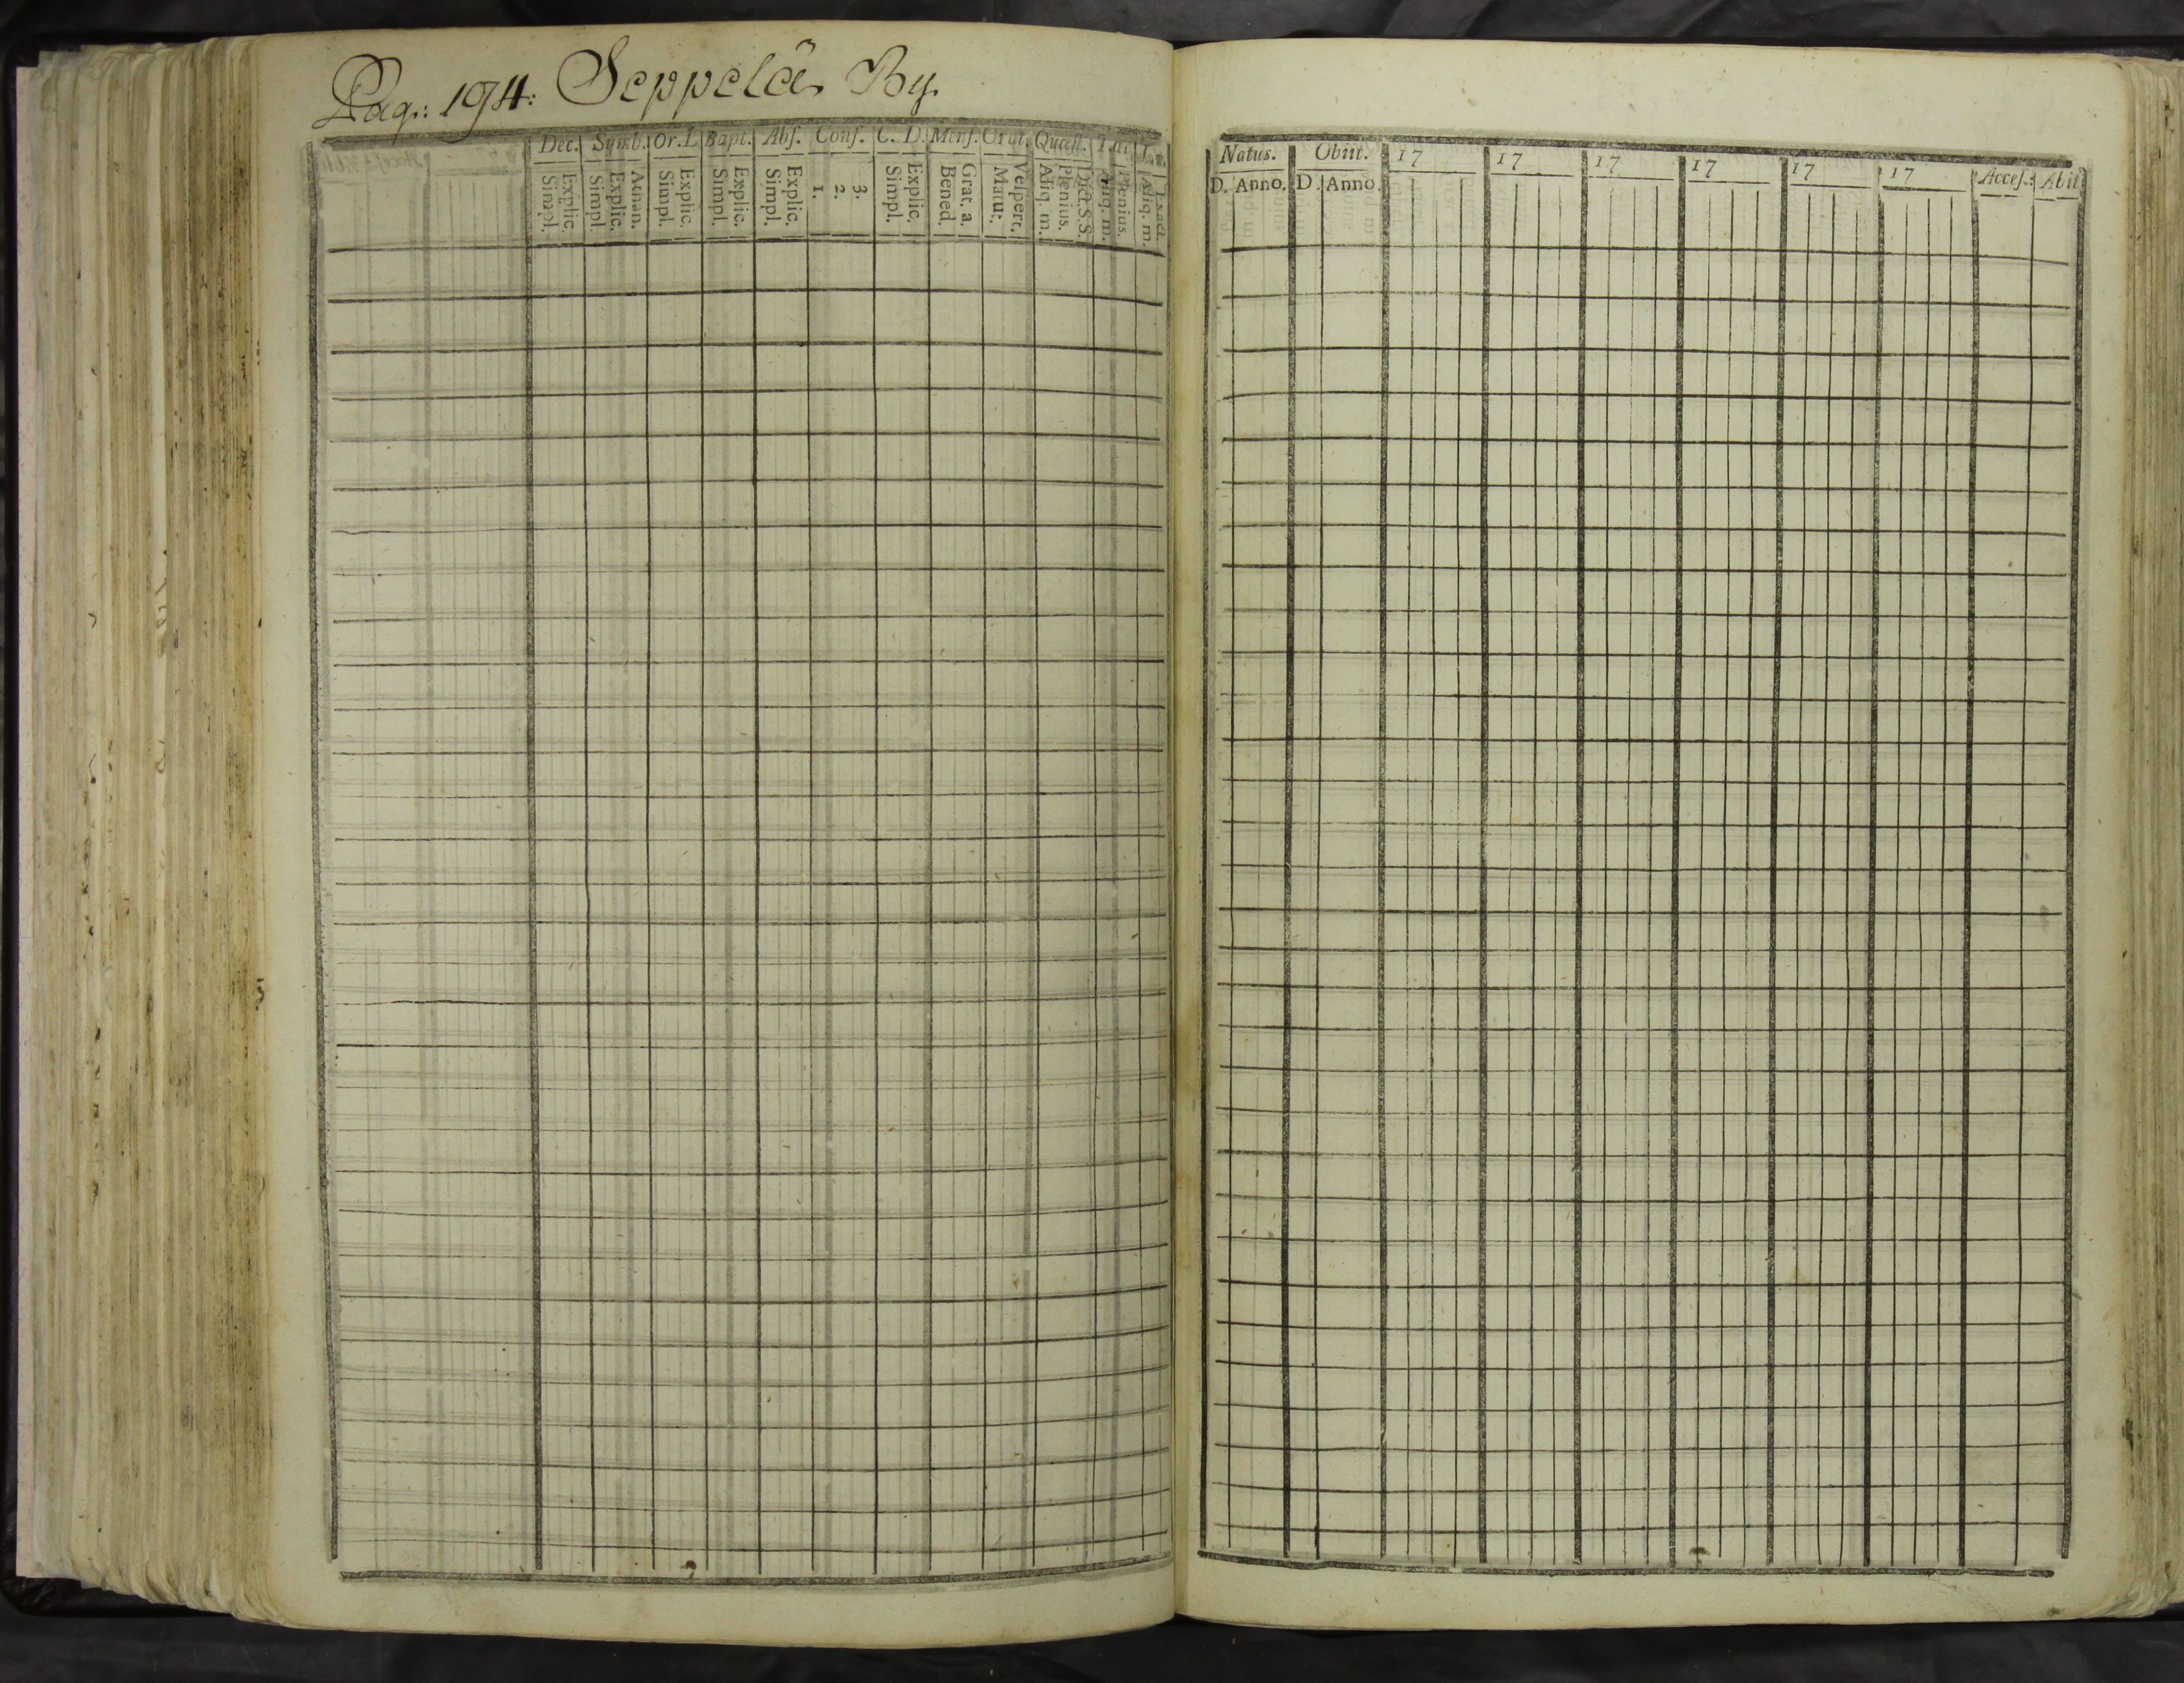 Pag: 194: Seppelä By.
Dec. Symb. Or. D. Bapt. Abs. Conf. C. D. Mens. Orat. Quæst.
Explic. Simpl. Athan. Explic. Simpl. Explic. Simpl. Explic. Simpl. Explic. Simpl. 3. 2. 1. Explic. Simpl. Grat. a. Bened. Vespert. Matut. Dict. S.S. Plenius. Aliq. m. Plenius. Aliq. m. Exact. Aliq. m.
Natus. Obiit. 17 17 17 17 17 17 Acces. Abit
D. Anno. D. Anno.